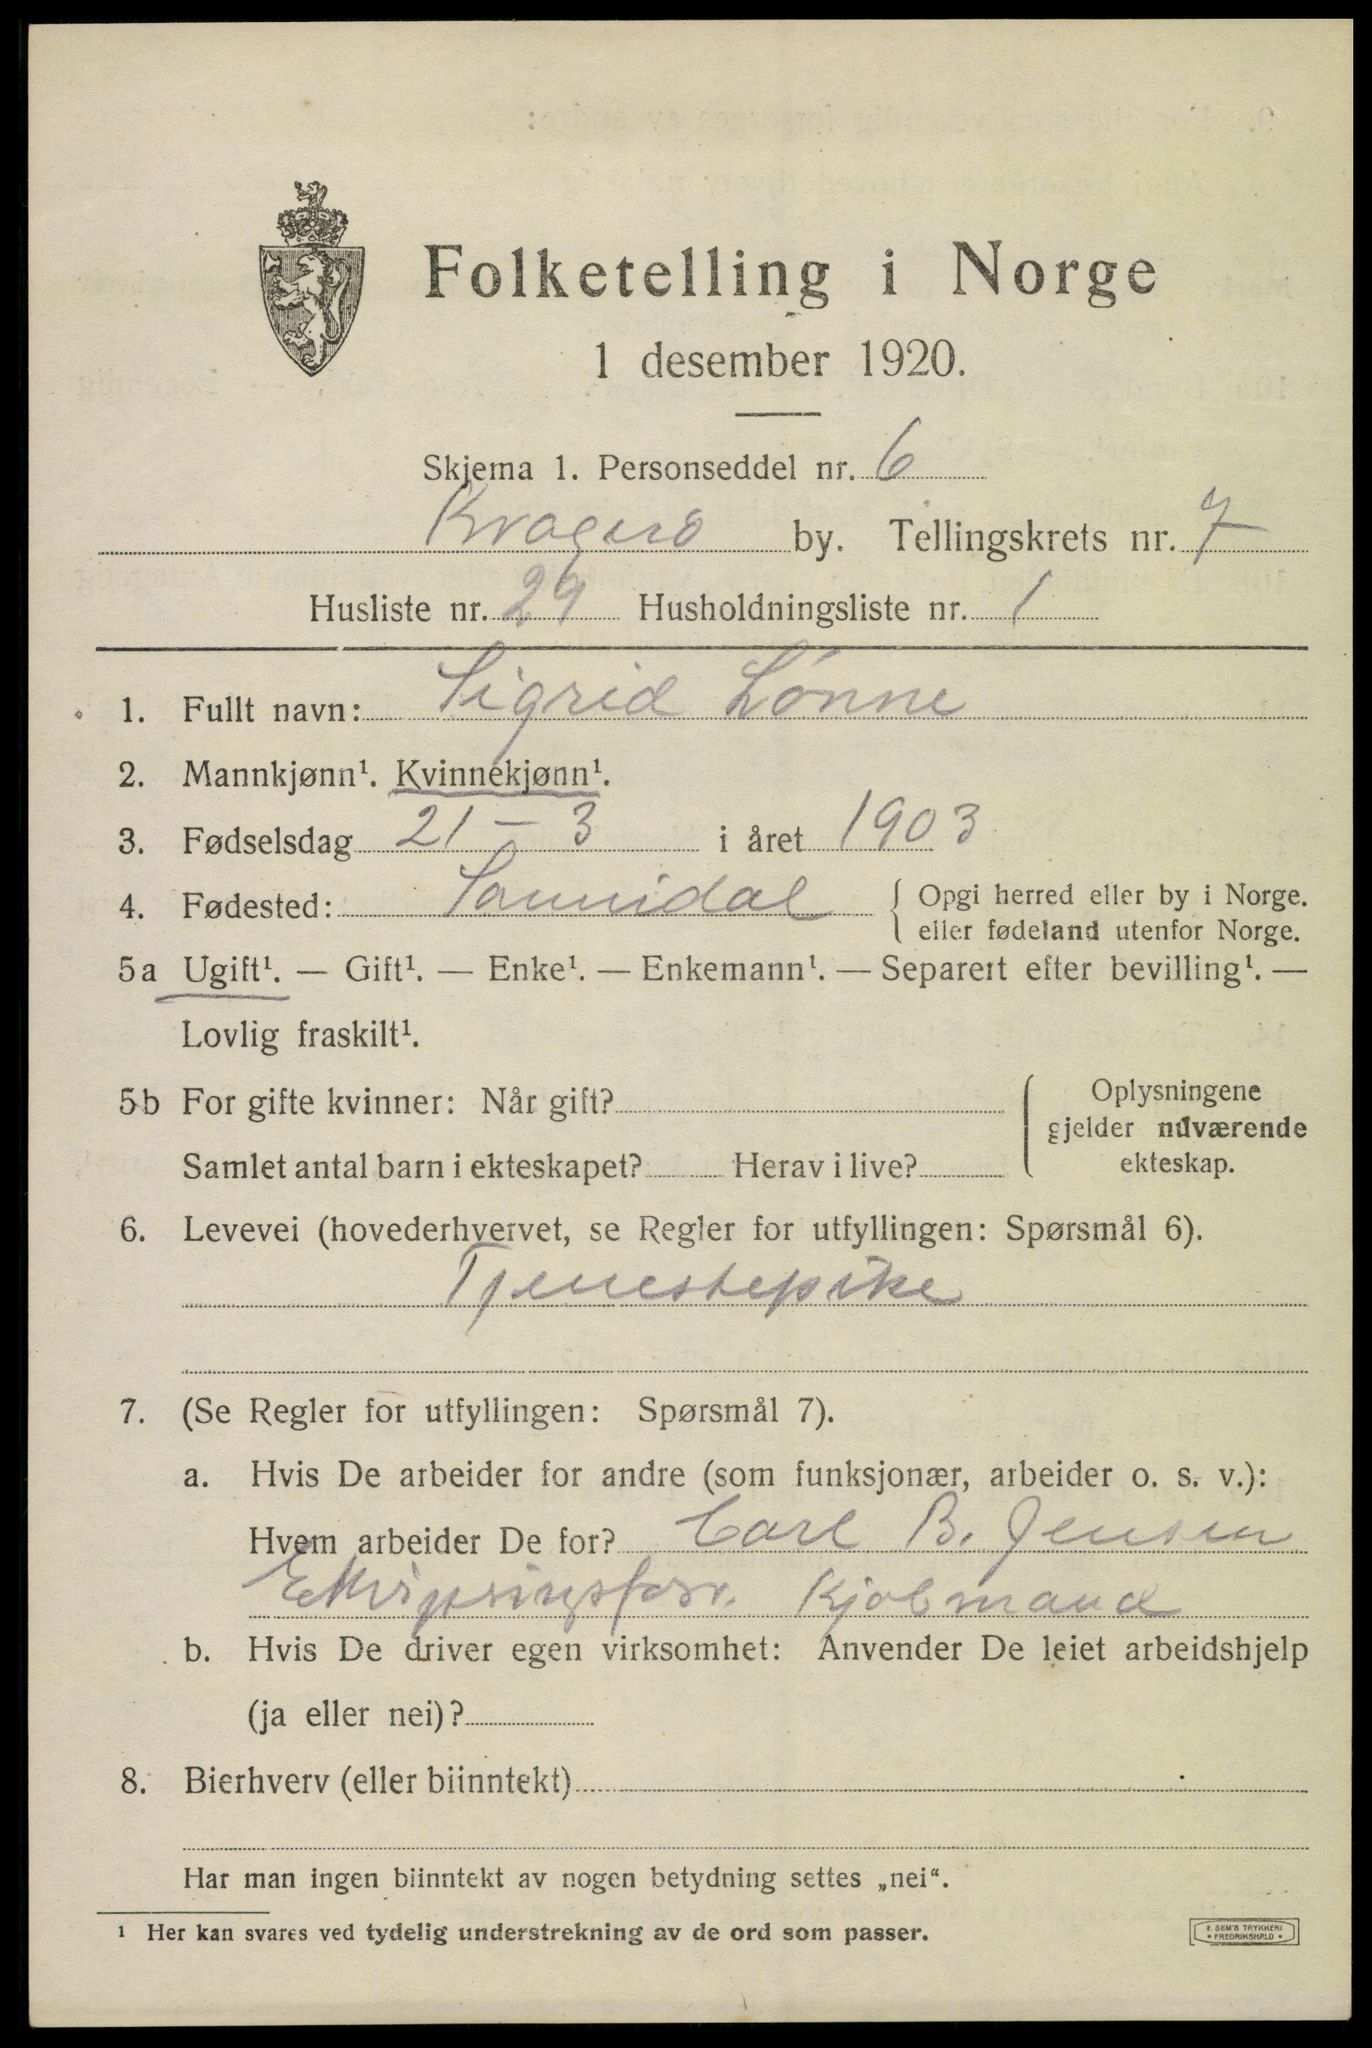 Folketelling i Norge
1 desember 1920.
Skjema 1. Personseddel nr. 6
Kragerø by. Tellingskrets nr. 7
Husliste nr. 29 Husholdningsliste nr. 1
1. Fullt navn: Sigrid Lønne
2. Mannkjønn¹. Kvinnekjønn¹.
3. Fødselsdag 21 – 3 i året 1903
4. Fødested: Sannidal { Opgi herred eller by i Norge.
eller fødeland utenfor Norge.
5a Ugift¹. — Gift¹. — Enke¹. — Enkemann¹. — Separert efter bevilling¹. —
Lovlig fraskilt¹.
5b For gifte kvinner: Når gift? { Oplysningene
gjelder nuværende
Samlet antal barn i ekteskapet? Herav i live? ekteskap.
6. Levevei (hovederhvervet, se Regler for utfyllingen: Spørsmål 6).
Tjenestepike
7. (Se Regler for utfyllingen: Spørsmål 7).
a. Hvis De arbeider for andre (som funksjonær, arbeider o. s. v.):
Hvem arbeider De for? Carl B. Jensen
Ekviperingsforr. Kjøbmand
b. Hvis De driver egen virksomhet: Anvender De leiet arbeidshjelp
(ja eller nei)?
8. Bierhverv (eller biinntekt)
Har man ingen biinntekt av nogen betydning settes „nei“.
¹ Her kan svares ved tydelig understrekning av de ord som passer.
E. SEM'S TRYKKERI
* FREDRIKSHALD *